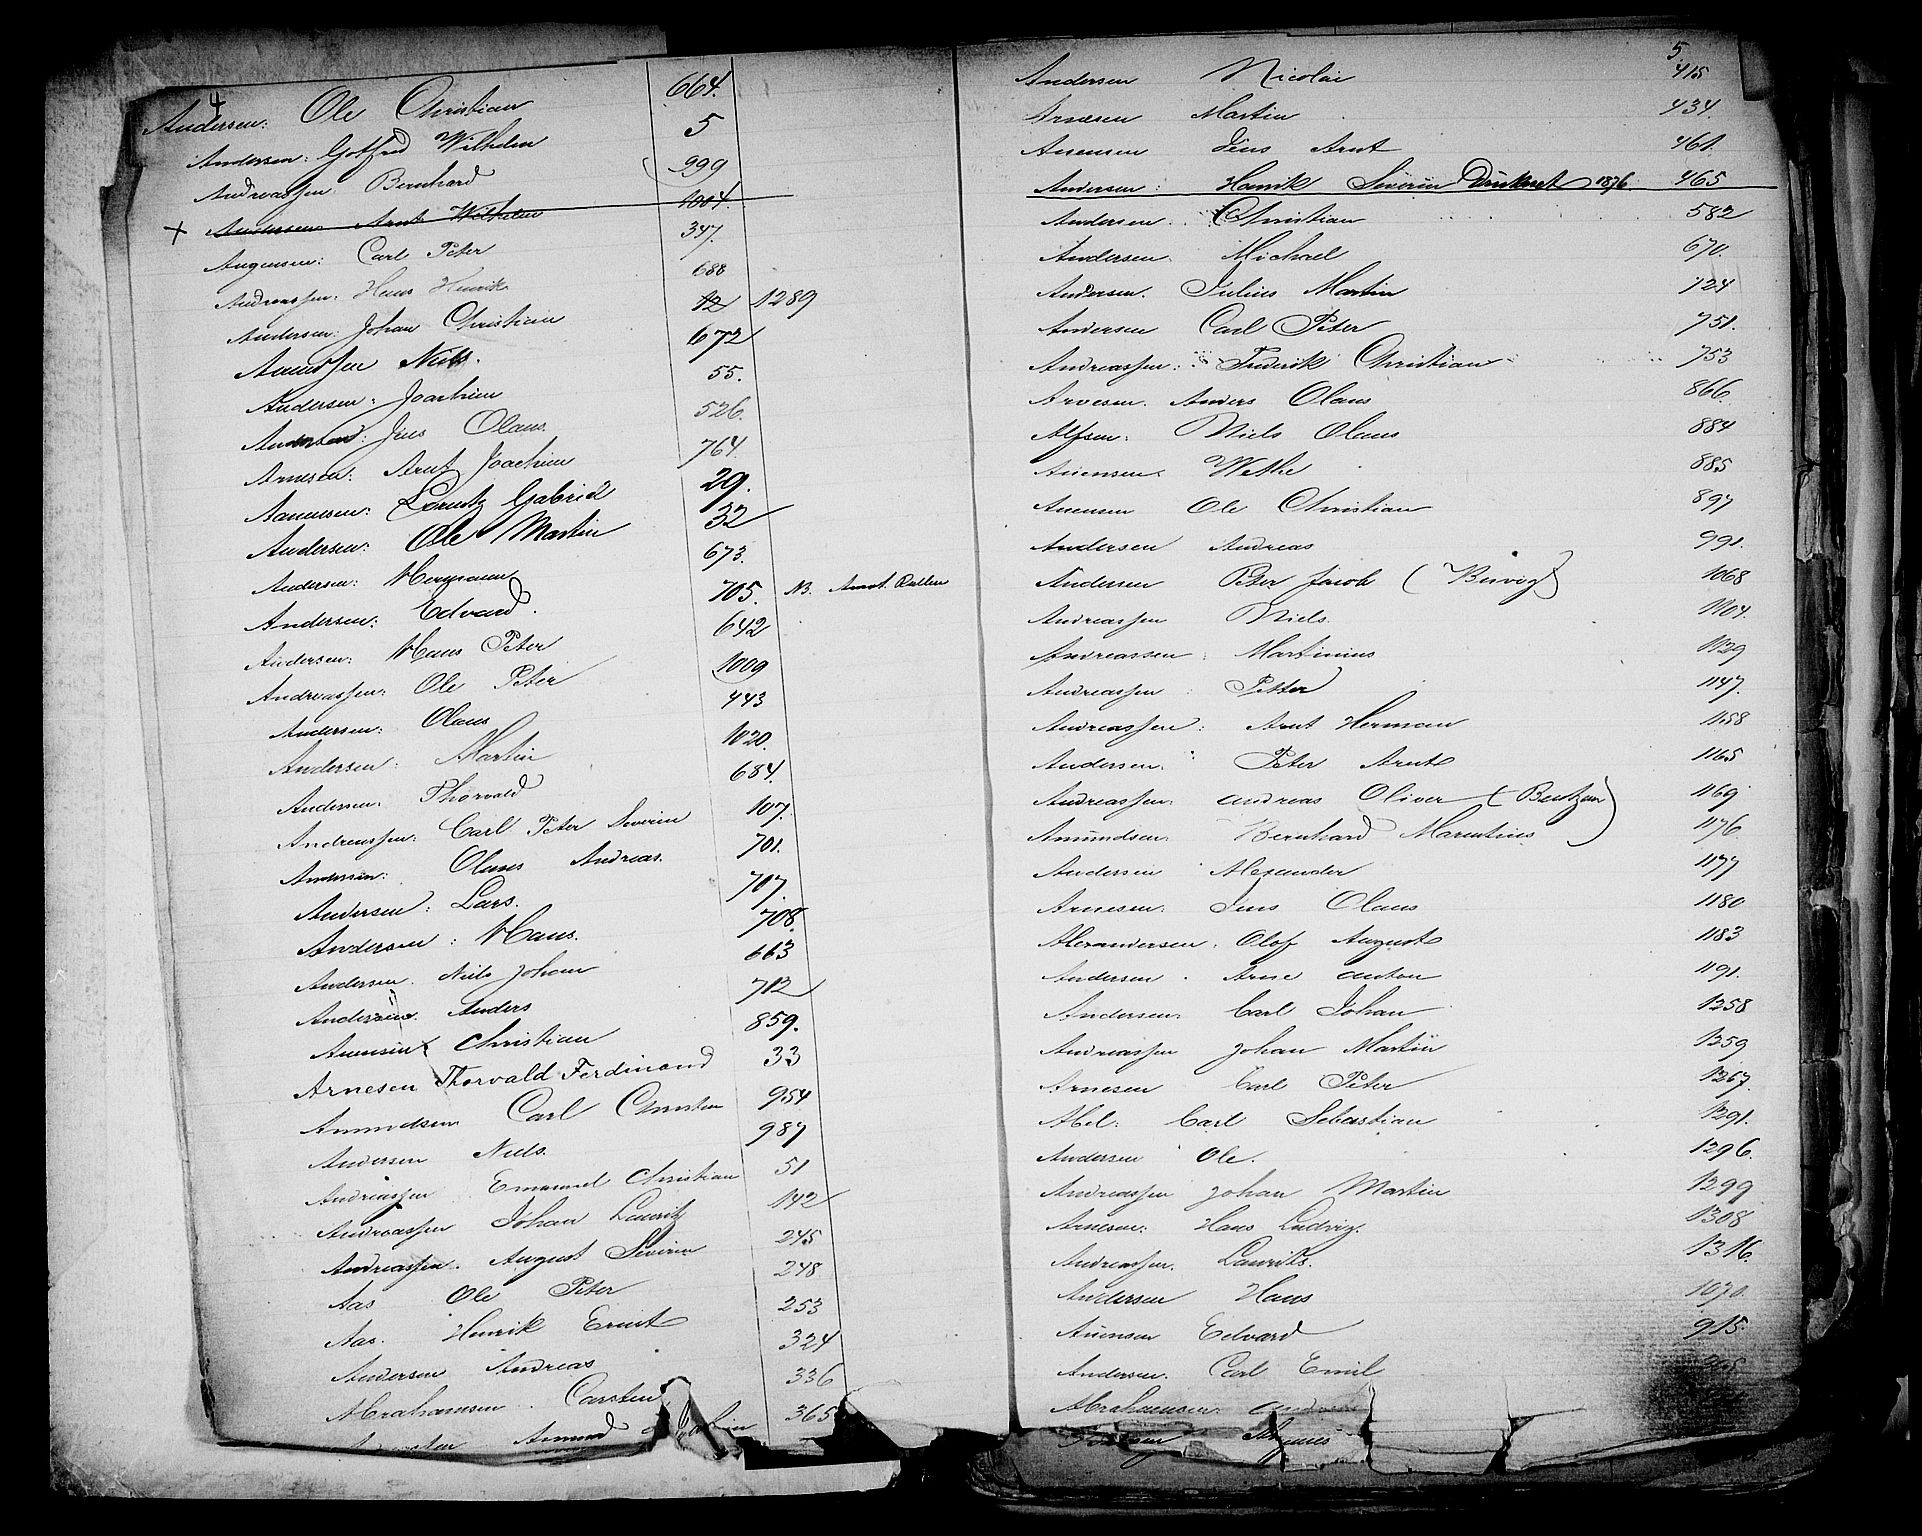 4
Andersen: Ole Christian 664.
Andersen: Gotfred Wilhelm 5
Andreassen Bernhard 999
+ Andersen Arnt Wilhelm 1004.
Carl Peter 347.
Andreassen: Hans Henrik 688
Andersen: Johan Christian 12 1289
Niels. 672
Andersen: Joachim 55.
Jens Olaus. 526.
Arnesen: Arnt Joachim 764
Lorentz Gabriel 29.
Andersen: Ole Martin 32
Andersen: Hermann 673.
Andersen: Edvard. 705. NB. Annot. Rullen
Andersen: Hans Peter 642
Andreassen: Ole Peter 1009
Andersen: Olaus 443
Andersen: Martin 1020.
Andersen: Thorvald 684.
Andreassen: Carl Peter Severin 107.
Andersen: Olaus Andreas. 701.
Andersen: Lars. 707.
Andersen: Hans. 708.
Andersen. Niels Johan 663
Andersen. Anders 712
Christian 859.
Arnesen Thorvald Ferdinand 33
Amundsen Carl Christian 954
Andersen Niels. 987
Andreassen Emanuel Christian 51
Andreassen Johan Lauritz 142
Andreassen. August Severin 245
Aas Ole Peter 248
Aas. Henrik Ernst 253
Andersen Andreas 324
Abrahamsen. Carsten 336
Amund 365
5.
Andersen Nicolai 415
Arnesen Martin 434.
Jens Arnt 461.
Andersen: Henrik Severin Druknet 1876 465
Andersen. Christian 582
Andersen. Michael 670.
Andersen. Julius Martin 724
Andersen Carl Peter 751.
Andreassen: Frederik Christian 753
Arvesen. Anders Olaus 866.
Alfsen: Niels Olaus 884
Wethe 885
Ole Christian 897
Andersen Andreas 991.
Andersen Peter Jacob ( ) 1068
Andreassen Niels. 1104.
Andreassen: Martinius 1129
Andreassen: Petter 1147.
Andreassen: Arnt Herman 1158
Andersen. Peter Arnt 1165
Andreassen: Andreas Oliver (Bentzen) 1169
Amundsen. Bernhard Marentius 1176
Andersen Alexander 1177
Arnesen: Jens Olaus 1180
Alexandersen. Olof August 1183
Andersen. Arne Anton 1191.
Andersen. Carl Johan 1258
Andreassen Johan Martin 1259
Arnesen Carl Peter 1267.
Abel: Carl Sebastian 1291.
Andersen Ole. 1296.
Andreassen Johan Martin 1299
Arnesen: Hans Ludvig. 1308
Andreassen. Laurits. 1316.
Andersen Hans 1070.
Edvard 915.
Andersen. Carl Emil
Abrahamsen.